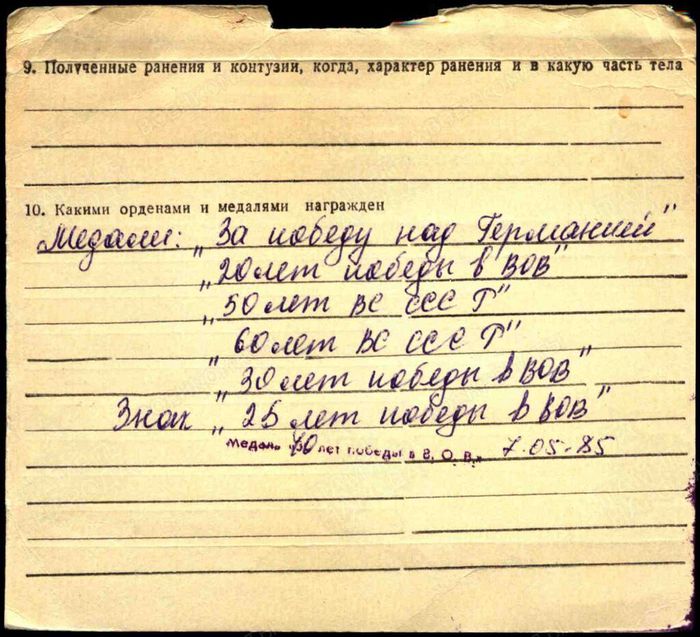 9. Полученные ранения и контузии, когда, характер ранения и в какую часть тела
10. Какими орденами и медалями награжден
Медали: „За победу над Германией"
„20 лет победы в ВОВ"
„50 лет ВС СССР"
„60 лет ВС СССР"
„30 лет победы в ВОВ"
Знак „25 лет победы в ВОВ"
Медаль «40 лет победы в В. О. В.» 7.05.85